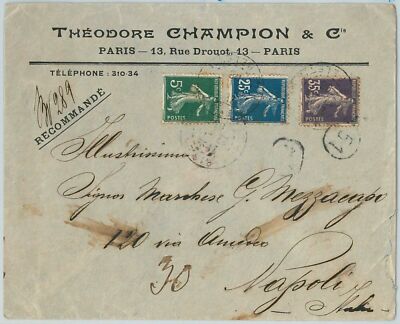 THÉODORE CHAMPION & Cie
PARIS — 13, Rue Drouot, 13 — PARIS
TÉLÉPHONE : 310-34
No 289
RECOMMANDÉ
5c
25c
35c
POSTES
POSTES
POSTES
Illustrissimo
Signor Marchese G. Mezzacapo
120 via Amedeo
35
Napoli
Italie